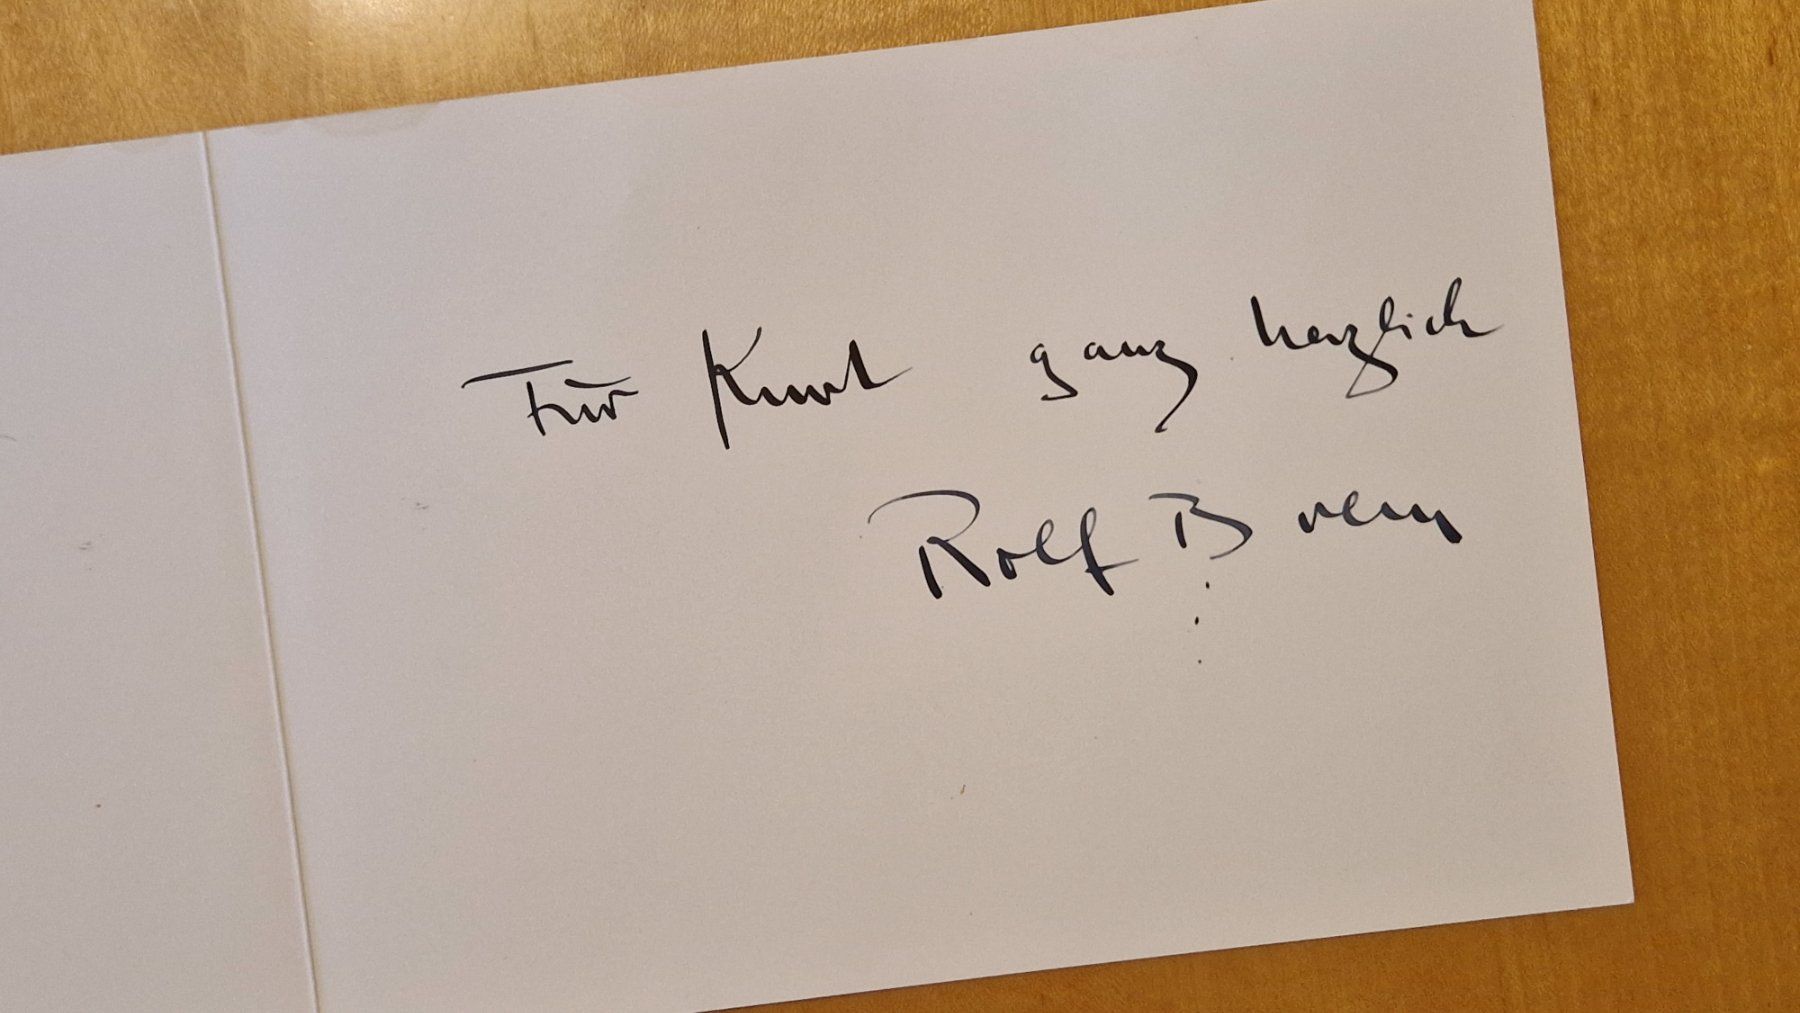 Für Kurt ganz herzlich
Rolf